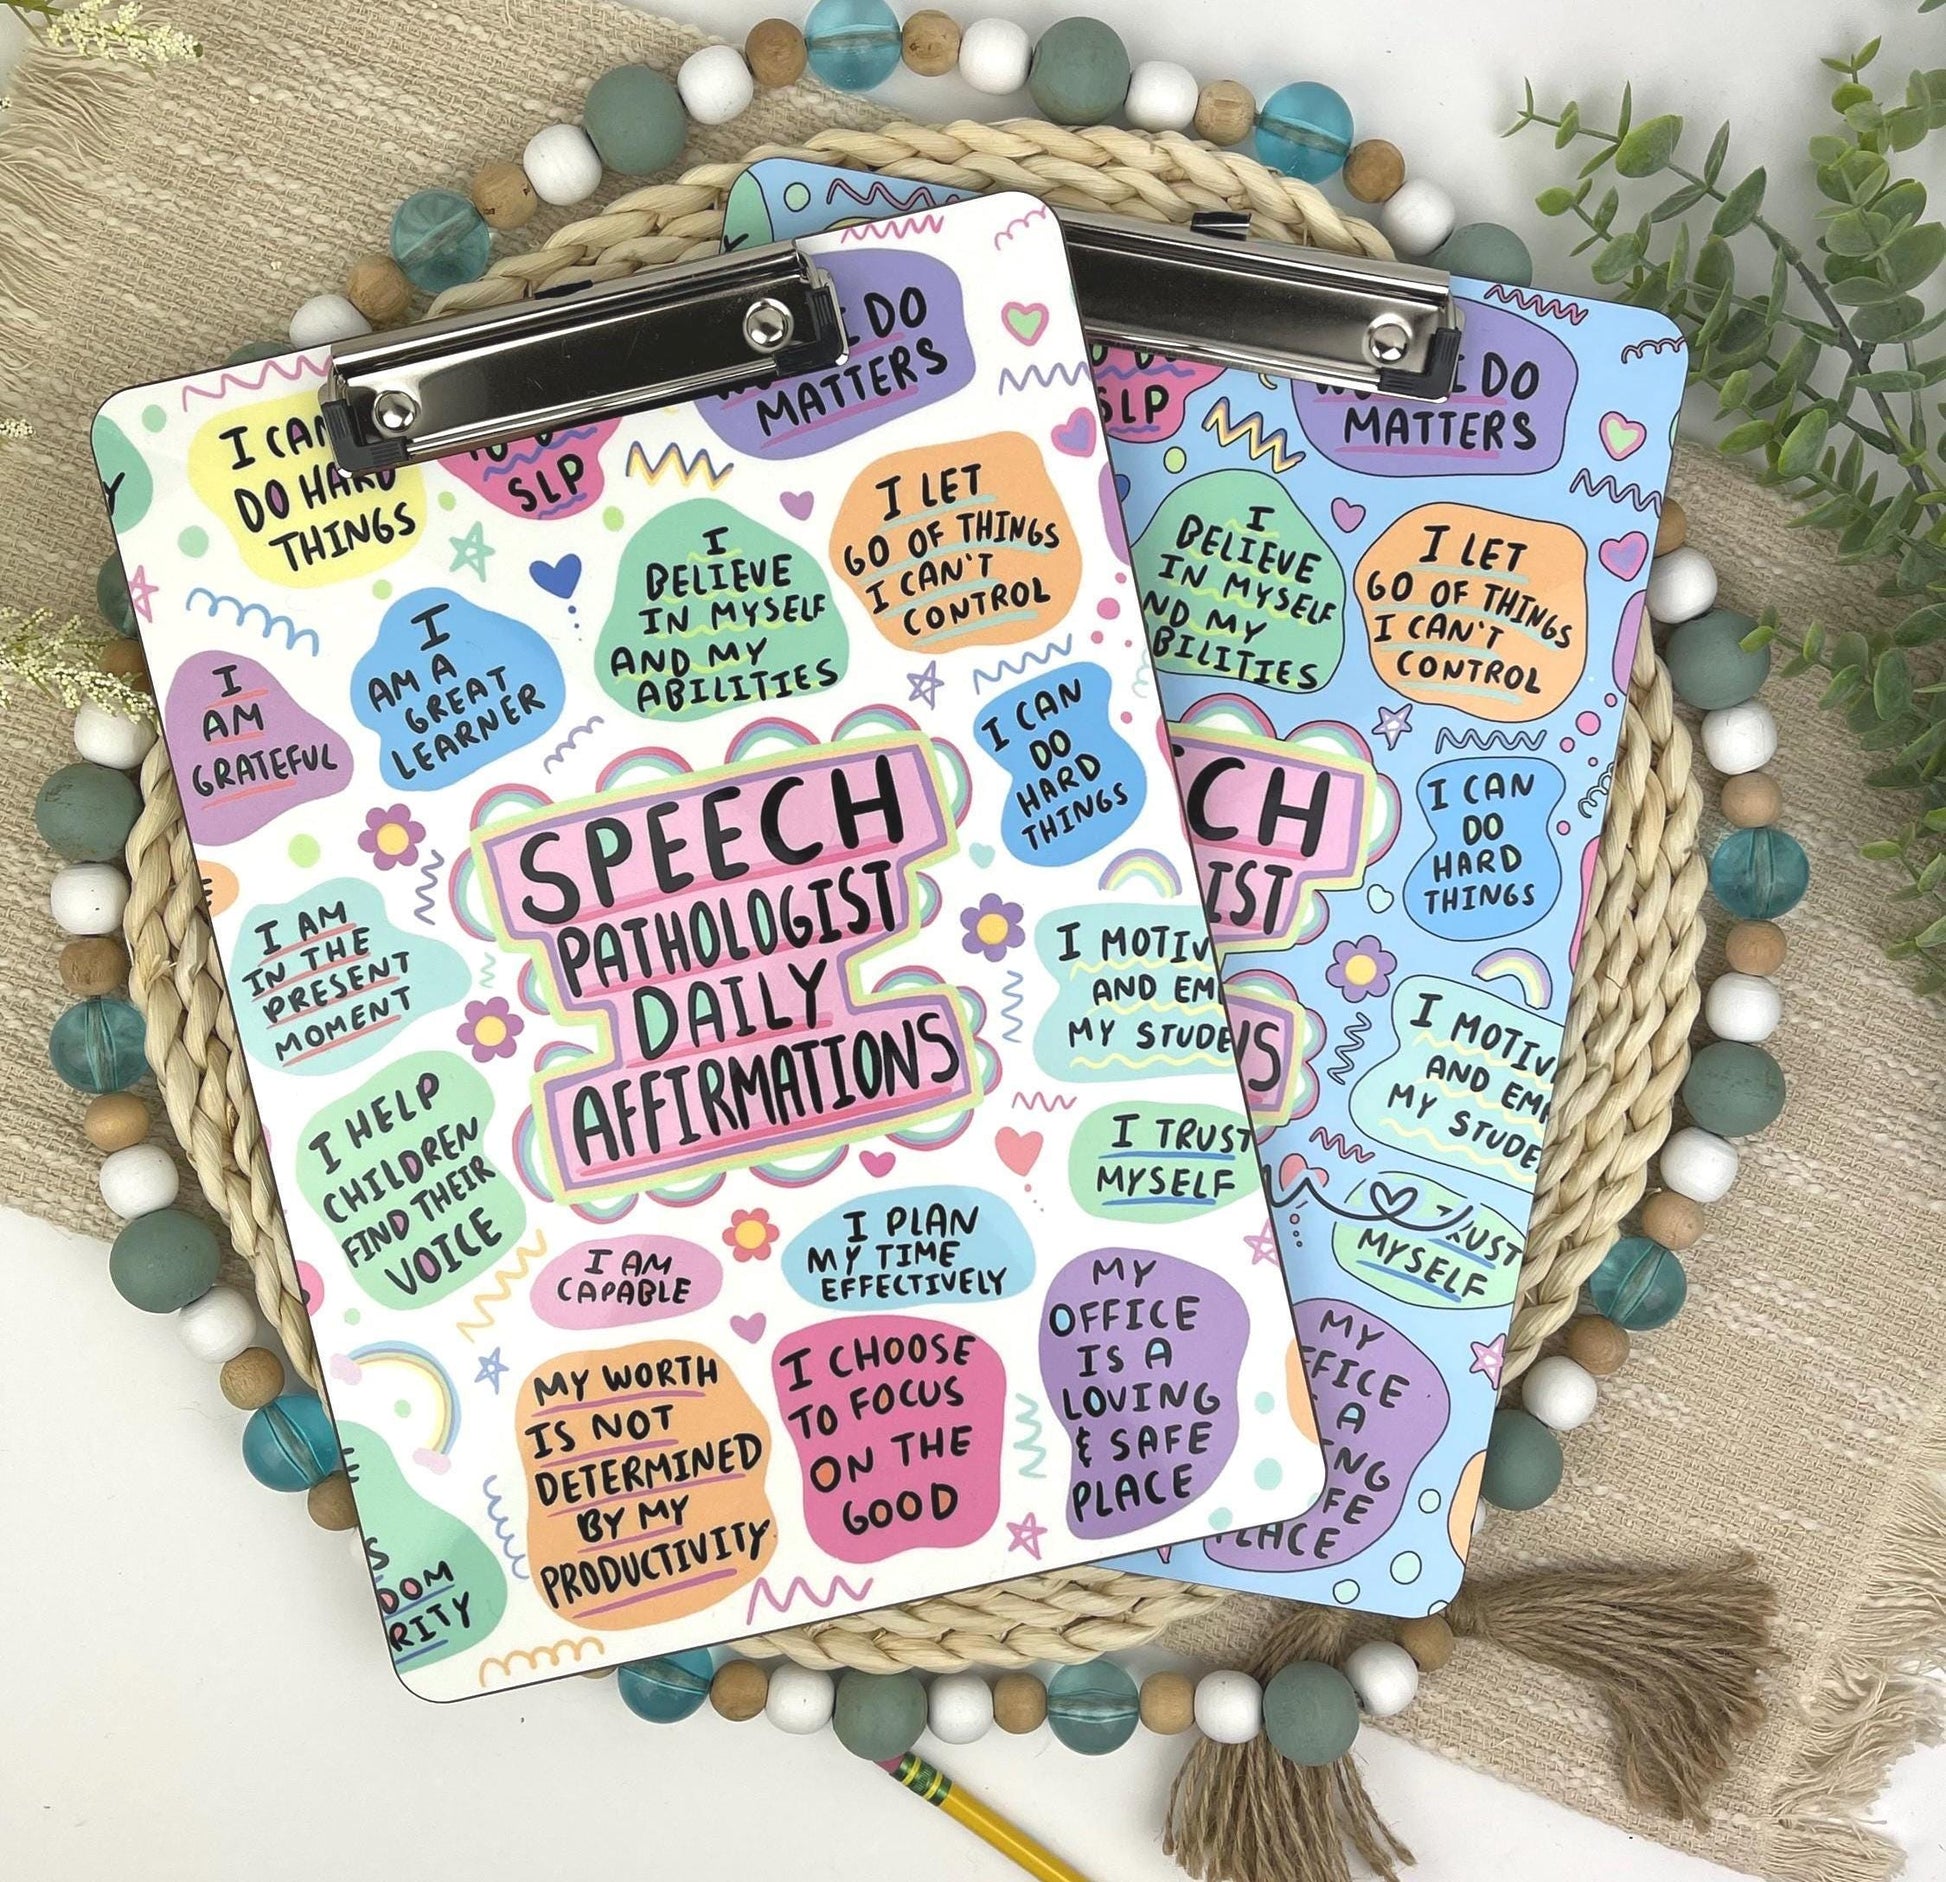 I CAN
DO HARD
THINGS
SLP
DO
MATTERS
I LET
GO OF THINGS
I CAN'T
CONTROL
I
BELIEVE
IN MYSELF
AND MY
ABILITIES
I
AM A
GREAT
LEARNER
I
AM
GRATEFUL
I CAN
DO
HARD
THINGS
SPEECH
PATHOLOGIST
DAILY
AFFIRMATIONS
I AM
IN THE
PRESENT
MOMENT
I MOTIV
AND EM
MY STUDE
I HELP
CHILDREN
FIND THEIR
VOICE
I TRUST
MYSELF
I AM
CAPABLE
I PLAN
MY TIME
EFFECTIVELY
MY
OFFICE
IS A
LOVING
& SAFE
PLACE
MY WORTH
IS NOT
DETERMINED
BY MY
PRODUCTIVITY
I CHOOSE
TO FOCUS
ON THE
GOOD
S
DOM
RITY
SLP
I DO
MATTERS
I
BELIEVE
IN MYSELF
ND MY
BILITIES
I LET
GO OF THINGS
I CAN'T
CONTROL
I CAN
DO
HARD
THINGS
CH
IST
NS
I MOTIV
AND EM
MY STUDE
UST
MYSELF
MY
FFICE
A
ING
FE
LACE